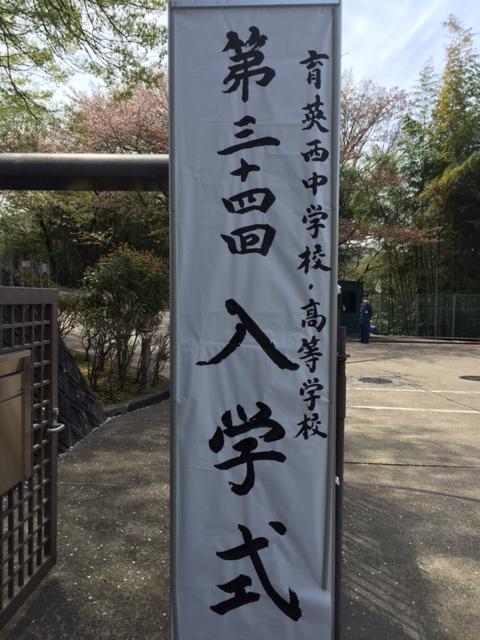 育英西中学校・高等学校
第三十四回入学式